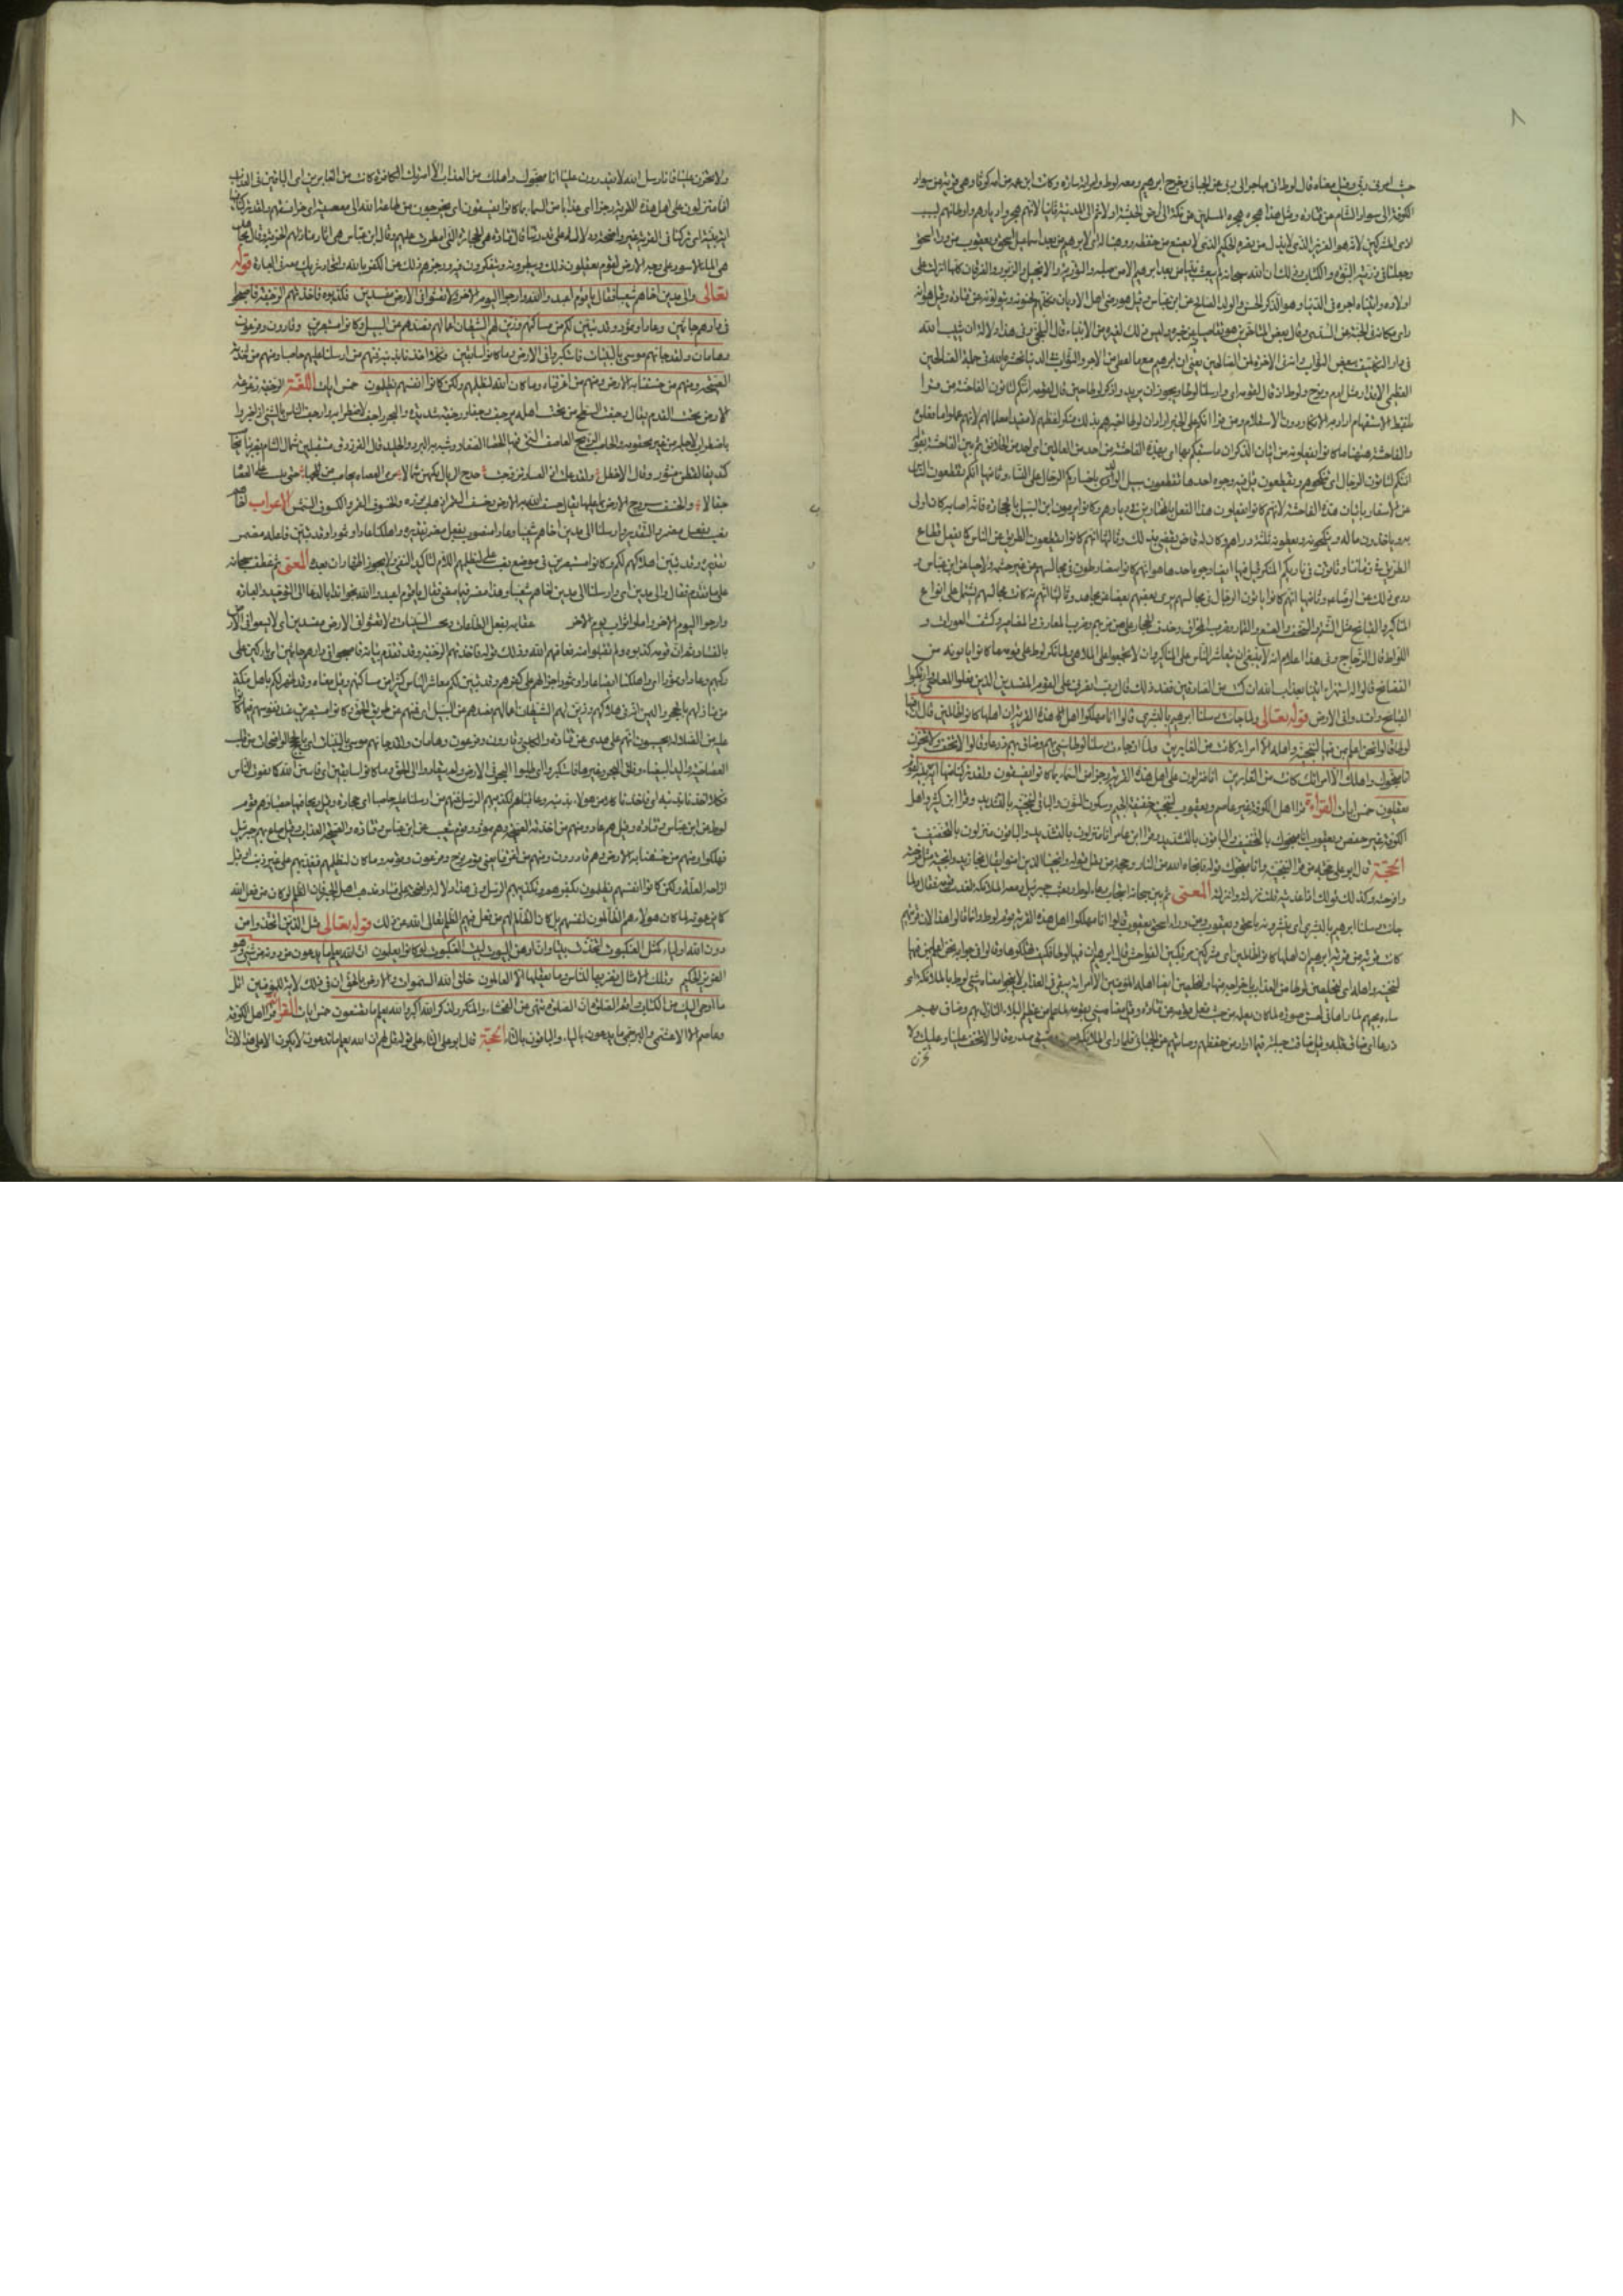 حيث امرني ربي وقيل معناه قال لوط اني مهاجر الى ربي عن الجبائي وخرج ابرهيم ومعه لوط وامراته ساره وكانت ابنة عمه من كوثى وهي قرية من سواد
الكوفة الى سواد الشام عن قتادة ومثل هذا هجرة المسلمين من مكة الى ارض الحبشة اولا ثم الى المدينة ثانيا لانهم هجروا ديارهم واوطانهم لسبب
اذى المشركين لانه هو العزيز الذي لا يذل من نصره الحكيم الذي لا يضيع من حفظه ووهبنا له اي لابرهيم من بعد اسمعيل اسحق ويعقوب من وراء اسحق
وجعلنا في ذريته النبوة والكتاب وذلك ان الله سبحانه لم يبعث نبيا من بعد ابرهيم الا من صلبه والتورية والانجيل والزبور والفرقان كلها انزلت على
اولاده واتيناه اجره في الدنيا وهو الذكر الحسن والولد الصالح عن ابن عباس وقيل هو رضى اهل الاديان فكلهم يحبونه ويتولونه عن قتادة وقيل هو انه
راى مكانه في الجنة عن السدي وقال بعض المتاخرين هو بقاء ضيافته عند قبره وليس ذلك لغيره من الانبياء قال البلخي وفي هذا دلالة ان يثيب الله
في دار التكليف ببعض الثواب وانه في الاخرة لمن الصالحين يعني ان ابرهيم مع ما اعطي من الاجر والثواب في الدنيا يحشره الله في جملة الصالحين
العظيمي الاقدار مثل ادم ونوح ولوطا اذ قال لقومه اي وارسلنا لوطا ويجوز ان يريد واذكر لوطا حين قال لقومه ائنكم لتاتون الفاحشة من قرا
بلفظ الاستفهام اراد به الانكار دون الاستعلام ومن قرا انكم على الخبر اراد ان لوطا اخبرهم بذلك منكرا لفعلهم لا مفيدا معلما لهم لانهم علموا ما فعلوه
والفاحشة ههنا ما كانوا يفعلونه من اتيان الذكران ما سبقكم بها اي بهذه الفاحشة من احد من العالمين اي احد من الخلايق ثم بين الفاحشة بقوله
ائنكم لتاتون الرجال اي تنكحوهم وتقطعون السبيل قيل فيه وجوه احدها تقطعون سبيل الولد باختياركم الرجال على النساء وثانيها انكم تقطعون الناس
عن الاسفار باتيان هذه الفاحشة لانهم كانوا يفعلون هذا الفعل بالمجتازين في ديارهم وكانوا يرمون ابن السبيل بالحجارة فايهم اصابه كان اولى
به وياخذون ماله وينكحونه ويغرمونه ثلثة دراهم وكان لهم قاض يقضي بذلك وثالثها انهم كانوا يقطعون الطريق عن الناس كما يفعل قطاع
الطريق في زماننا وتاتون في ناديكم المنكر قيل فيه ايضا وجوه احدها هو انهم كانوا يتضارطون في مجالسهم من غير حشمة ولا حياء عن ابن عباس و
روي ذلك عن الرضاء وثانيها انهم كانوا ياتون الرجال في مجالسهم يرى بعضهم بعضا عن مجاهد وثالثها انهم كانت مجالسهم تشتمل على انواع
المناكير والقبايح مثل الشتم والسخف والصفع والقمار وضرب المخراق وحذف الاحجار على من مر بهم وضرب المعازف والمزامير وكشف العورات و
اللواط قال الزجاج وفي هذا اعلام انه لا ينبغي ان يتعاشر الناس على المناكير وان لا يجتمعوا على الملاهي فلما انكر لوط على قومه ما كانوا ياتونه من
الفضايح قالوا له استهزاء ائتنا بعذاب الله ان كنت من الصادقين فعند ذلك قال رب انصرني على القوم المفسدين الذين فعلوا المعاصي وارتكبوا
القبايح وافسدوا في الارض قوله تعالى ولما جاءت رسلنا ابرهيم بالبشرى قالوا انا مهلكوا اهل هذه القرية ان اهلها كانوا ظالمين قال ان فيها
لوطا قالوا نحن اعلم بمن فيها لننجينه واهله الا امراته كانت من الغابرين ولما ان جاءت رسلنا لوطا سيء بهم وضاق بهم ذرعا وقالوا لا تخف ولا تحزن
انا منجوك واهلك الا امراتك كانت من الغابرين انا منزلون على اهل هذه القرية رجزا من السماء بما كانوا يفسقون ولقد تركنا منها اية بينة لقوم
يعقلون خمس ايات القراءة قرا اهل الكوفة غير عاصم ويعقوب لننجينه خفيفة الجيم وسكون النون والباقي لننجينه بالتشديد وقرا ابن كثير واهل
الكوفة غير حفص ويعقوب انا منجوك بالتخفيف والباقون بالتشديد وقرا ابن عامر انا منزلون بالتشديد والباقون منزلون بالتخفيف
الحجة قال ابو علي حجة من قرا لننجينه وانا منجوك قوله فانجاه الله من النار وحجة من ثقل قوله ونجينا الذين امنوا ويقال نجا زيد وانجيته ونجيته مثل فرح
وافرحته وكذلك قولك انا عند نزلته وانزلته المعنى ثم بين سبحانه استجاب دعاء لوط وبعث جبرئيل ومعه الملائكة لتعذيب قومه فقال ولما
جاءت رسلنا ابرهيم بالبشرى اي يبشرونه باسحق ويعقوب ومن وراء اسحق يعقوب قالوا انا مهلكوا اهل هذه القرية يعنون قرية لوط وانما قالوا هذا لان قريتهم
كانت قريبة من قرية ابرهيم ان اهلها كانوا ظالمين اي مشركين مرتكبين للفواحش قال ابرهيم ان فيها لوطا فكيف تهلكوها وقالوا في جوابه نحن اعلم بمن فيها
لننجينه واهله اي لنخلصن لوطا من العذاب باخراجه منها ولنخلصن ايضا اهله المؤمنين الا امراته تبقى في العذاب لا تنجو منها سيء لوط بالملائكة اي
ساءه مجيئهم لما راهم في احسن صورة لما كان يعلمه من خبث فعل قومه عن قتادة وقيل معناه سيء بقومه لما علم من عظيم البلاء النازل بهم وضاق بهم
ذرعا اي ضاق قلبه وقيل ضاقت حيلته فيما اراد من حفظهم وصيانتهم عن الجبائي فلما راى الملائكة حزنه وضيق صدره قالوا لا تخف علينا وعليك ولا
تحزن
ولا تحزن علينا فانا رسل الله لا يقدرون علينا انا منجوك واهلك من العذاب الا امراتك الكافرة كانت من الغابرين اي الباقين في العذاب
انا منزلون على اهل هذه القرية رجزا اي عذابا من السماء بما كانوا يفسقون اي يخرجون من طاعة الله الى معصيته اي جزاء بفسقهم ولقد تركنا منها
اية بينة اي تركنا في القرية عبرة واضحة ودلالة على قدرتنا قال قتادة هي الحجارة التي امطرت عليهم وقال ابن عباس هي اثار منازلهم الخربة وقال مجاهد
هي الماء الاسود على وجه الارض لقوم يعقلون ذلك ويبصرونه ويتفكرون فيه ويزجرهم ذلك عن الكفر بالله واتخاذ شريك معه في العبادة قوله
تعالى والى مدين اخاهم شعيبا فقال يا قوم اعبدوا الله وارجوا اليوم الاخر ولا تعثوا في الارض مفسدين فكذبوه فاخذتهم الرجفة فاصبحوا
في دارهم جاثمين وعادا وثمود وقد تبين لكم من مساكنهم وزين لهم الشيطان اعمالهم فصدهم عن السبيل وكانوا مستبصرين وقارون وفرعون
وهامان ولقد جاءهم موسى بالبينات فاستكبروا في الارض وما كانوا سابقين فكلا اخذنا بذنبه فمنهم من ارسلنا عليه حاصبا ومنهم من اخذته
الصيحة ومنهم من خسفنا به الارض ومنهم من اغرقنا وما كان الله ليظلمهم ولكن كانوا انفسهم يظلمون خمس ايات اللغة الرجفة زعزعة
الارض تحت القدم يقال رجف السطح من تحت اهله يرجف رجفا ورجفة شديدة والبحر رجاف لاضطرابه وارجف الناس بالشيء اذا اخبروا
باضطراب لاجله من غير تحققه والحاصب الريح العاصف التي فيها الحصباء الصغار وشبه به البرد والجليد قال الفرزدق مستقبلين شمال الشام تضربنا بحاصب
كنديف القطن منثور وقال الاخطل ولقد علمت اذا العشار تروحت هدج الرئال تكبهن شمالا ترمي العضاه بحاصب من ثلجها حتى يبيت على العضاه
جفالا والخسف سووخ الارض بما عليها يقال خسف الله به الارض وخسف القمر اذا ذهب نوره والخسوف للقمر والكسوف للشمس الاعراب اخاهم
نصب بفعل مضمر والتقدير وارسلنا الى مدين اخاهم شعيبا وعادا منصوب بفعل مضمر تقديره واهلكنا عادا وثمودا وقد تبين فاعله مضمر
تقديره وقد تبين اهلاكهم لكم وكانوا مستبصرين في موضع نصب على ليظلمهم اللام لتاكيد النفي ولا يجوز اظهار ان بعده المعنى ثم عطف سبحانه
على ما تقدم فقال والى مدين اي وارسلنا الى مدين اخاهم شعيبا وهذا مفسر فيما مضى فقال يا قوم اعبدوا الله بدا بالدعاء الى التوحيد والعبادة
وارجوا اليوم الاخر واملوا ثواب يوم الاخر عقابه بفعل الطاعات وتجنب السيئات ولا تعثوا في الارض مفسدين اي لا تسعوا في الارض
بالفساد ثم ان قومه كذبوه ولم يقبلوا منه فعاقبهم الله وذلك قوله فاخذتهم الرجفة وقد تقدم بيانه فاصبحوا في دارهم جاثمين اي باركين على
ركبهم وعادا وثمودا اي واهلكنا ايضا عادا وثمود جزاء لهم على كفرهم وقد تبين لكم معاشر الناس كثير من مساكنهم وقيل معناه وقد ظهر لكم يا اهل مكة
من منازلهم بالحجر واليمن اية في هلاكهم وزين لهم الشيطان اعمالهم فصدهم عن السبيل اي فمنعهم عن طريق الحق وكانوا مستبصرين عند نفوسهم فيما كانوا
عليه من الضلالة يحسبون انهم على هدى عن قتادة والكلبي وقارون وفرعون وهامان ولقد جاءهم موسى بالبينات اي بالحجج الواضحات من قلب
العصا حية واليد البيضاء وفلق البحر وغيرها فاستكبروا اي طلبوا التجبر في الارض ولم ينقادوا الى الحق وما كانوا سابقين اي فايتين الله كما يفوت السابق
فكلا اخذنا بذنبه اي فاخذنا كلا من هولاء بذنبه وعاقبناهم بتكذيبهم الرسل فمنهم من ارسلنا عليه حاصبا اي حجارة وقيل ريحا فيها حصباء وهم قوم
لوط عن ابن عباس وقتادة وقيل هم عاد ومنهم من اخذته الصيحة وهم ثمود وقوم شعيب عن ابن عباس وقتادة والصيحة العذاب وقيل صاح بهم جبرئيل
فهلكوا ومنهم من خسفنا به الارض وهو قارون ومنهم من اغرقنا يعني قوم نوح وفرعون وقومه وما كان الله ليظلمهم فيعذبهم على غير ذنب او قبل
ازاحة العلة ولكن كانوا انفسهم يظلمون بكفرهم وتكذيبهم الرسل وفي هذا دلالة واضحة على فساد مذهب اهل الجبر فان الظلم لو كان من فعل الله
كما يزعمون لما كان هولاء هم الظالمون لنفسهم بل كان الظالم لهم من فعل فيهم الظلم تعالى الله عن ذلك قوله تعالى مثل الذين اتخذوا من
دون الله اولياء كمثل العنكبوت اتخذت بيتا وان اوهن البيوت لبيت العنكبوت لو كانوا يعلمون ان الله يعلم ما يدعون من دونه من شيء وهو
العزيز الحكيم وتلك الامثال نضربها للناس وما يعقلها الا العالمون خلق الله السموات والارض بالحق ان في ذلك لاية للمؤمنين اتل
ما اوحي اليك من الكتاب واقم الصلوة ان الصلوة تنهى عن الفحشاء والمنكر ولذكر الله اكبر والله يعلم ما تصنعون خمس ايات القراءة قرا اهل الكوفة
وعاصم الا الاعشى والبرجمي ما يدعون بالياء والباقون بالتاء الحجة قال ابو علي التاء على قوله قل لهم ان الله يعلم ما تدعون لا يكون الا على هذا لان